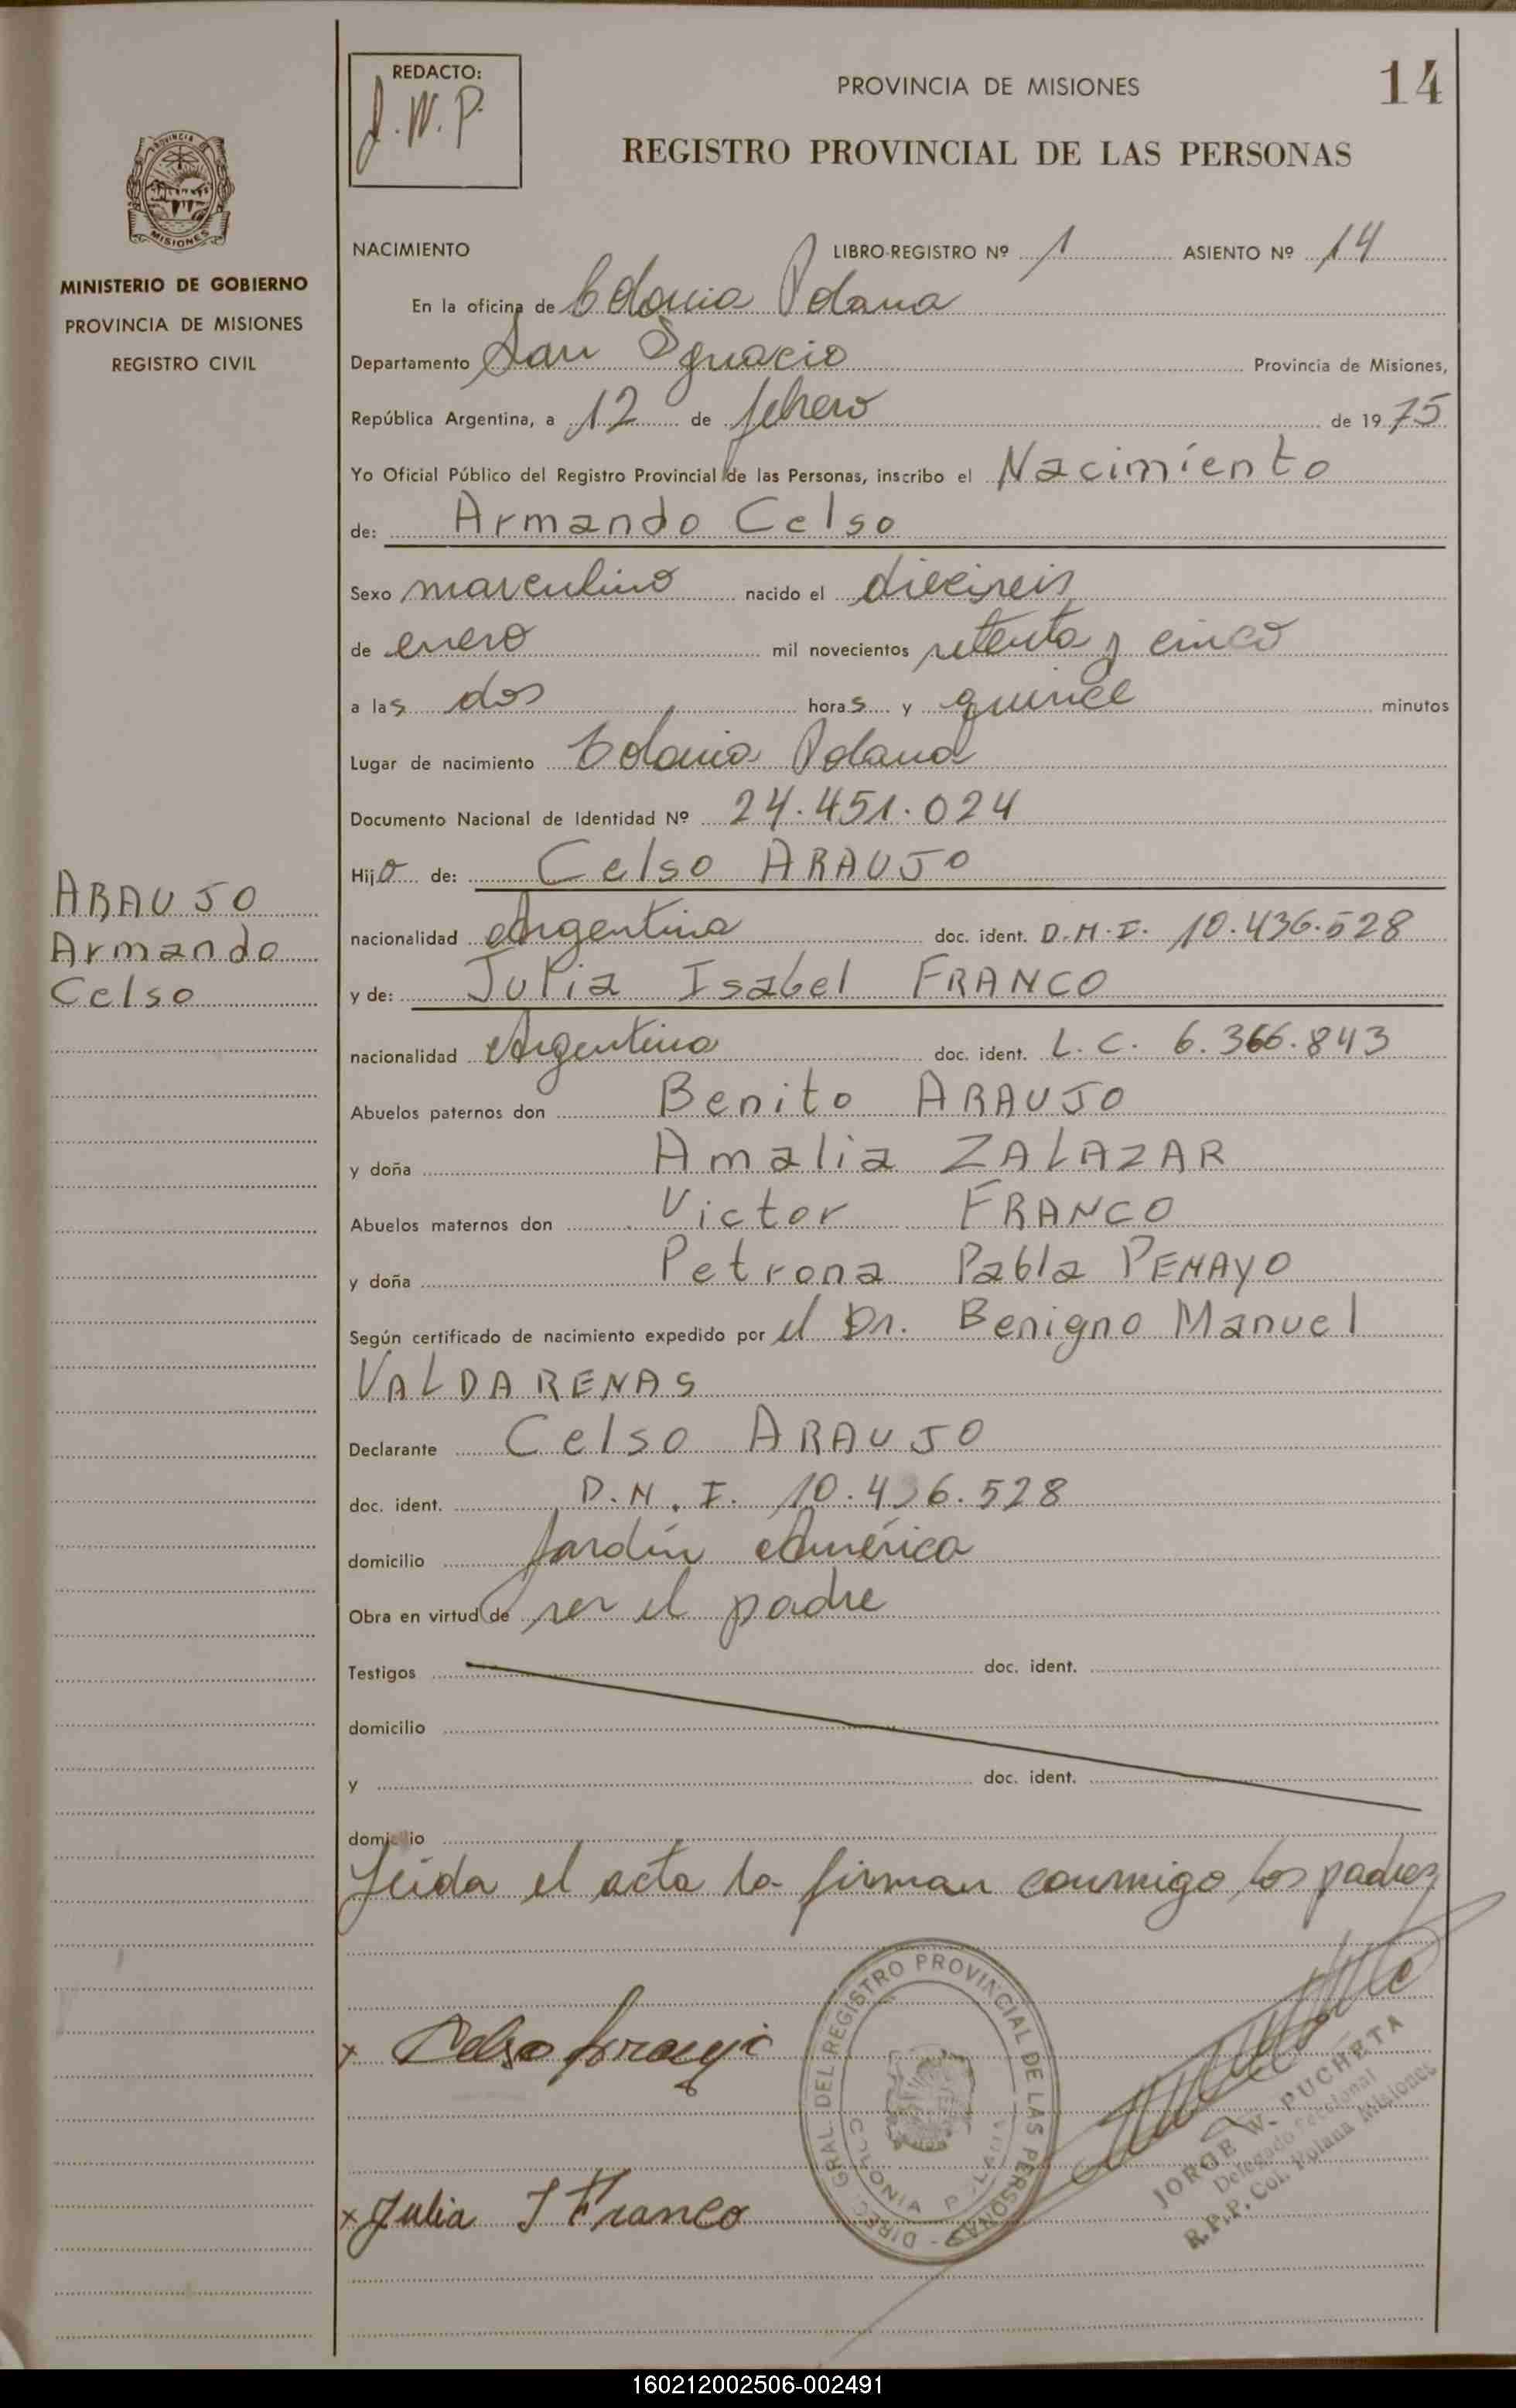 REDACTO:
J.W.P.
PROVINCIA DE MISIONES
14
REGISTRO PROVINCIAL DE LAS PERSONAS
PROVINCIA
MISIONES
MINISTERIO DE GOBIERNO
PROVINCIA DE MISIONES
REGISTRO CIVIL
ARAUJO
Armando
Celso
NACIMIENTO LIBRO-REGISTRO Nº 1 ASIENTO Nº 14
En la oficina de Colonia Polana
Departamento San Ignacio Provincia de Misiones,
República Argentina, a 12 de febrero de 1975
Yo Oficial Público del Registro Provincial de las Personas, inscribo el Nacimiento
de: Armando Celso
Sexo masculino nacido el dieciseis
de enero mil novecientos setenta y cinco
a las dos horas y quince minutos
Lugar de nacimiento Colonia Polana
Documento Nacional de Identidad Nº 24.451.024
Hijo de: Celso ARAUJO
nacionalidad Argentina doc. ident. D.N.I. 10.436.528
y de: Julia Isabel FRANCO
nacionalidad Argentina doc. ident. L.C. 6.366.843
Abuelos paternos don Benito ARAUJO
y doña Amalia ZALAZAR
Abuelos maternos don Victor FRANCO
y doña Petrona Pabla PENAYO
Según certificado de nacimiento expedido por el Dr. Benigno Manuel
VALDARENAS
Declarante Celso ARAUJO
doc. ident. D.N.I. 10.436.528
domicilio Jardín América
Obra en virtud de ser el padre
Testigos doc. ident.
domicilio
y doc. ident.
domicilio
Leida el acta la firman conmigo los padres
x Celso Araujo
x Julia I Franco
DIREC. GRAL. DEL REGISTRO PROVINCIAL DE LAS PERSONAS
COLONIA POLANA
JORGE W. PUCHETA
Delegado Seccional
R.P.P. Col. Polana Misiones
160212002506-002491